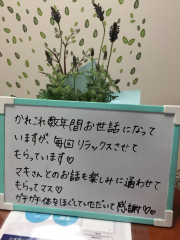 かれこれ数年間お世話になって
いますが、毎回リラックスさせて
もらっています♡
マキさんとのお話も楽しみに通わせて
もらってマス♡
ガチガチ体をほぐしていただいて感謝♡